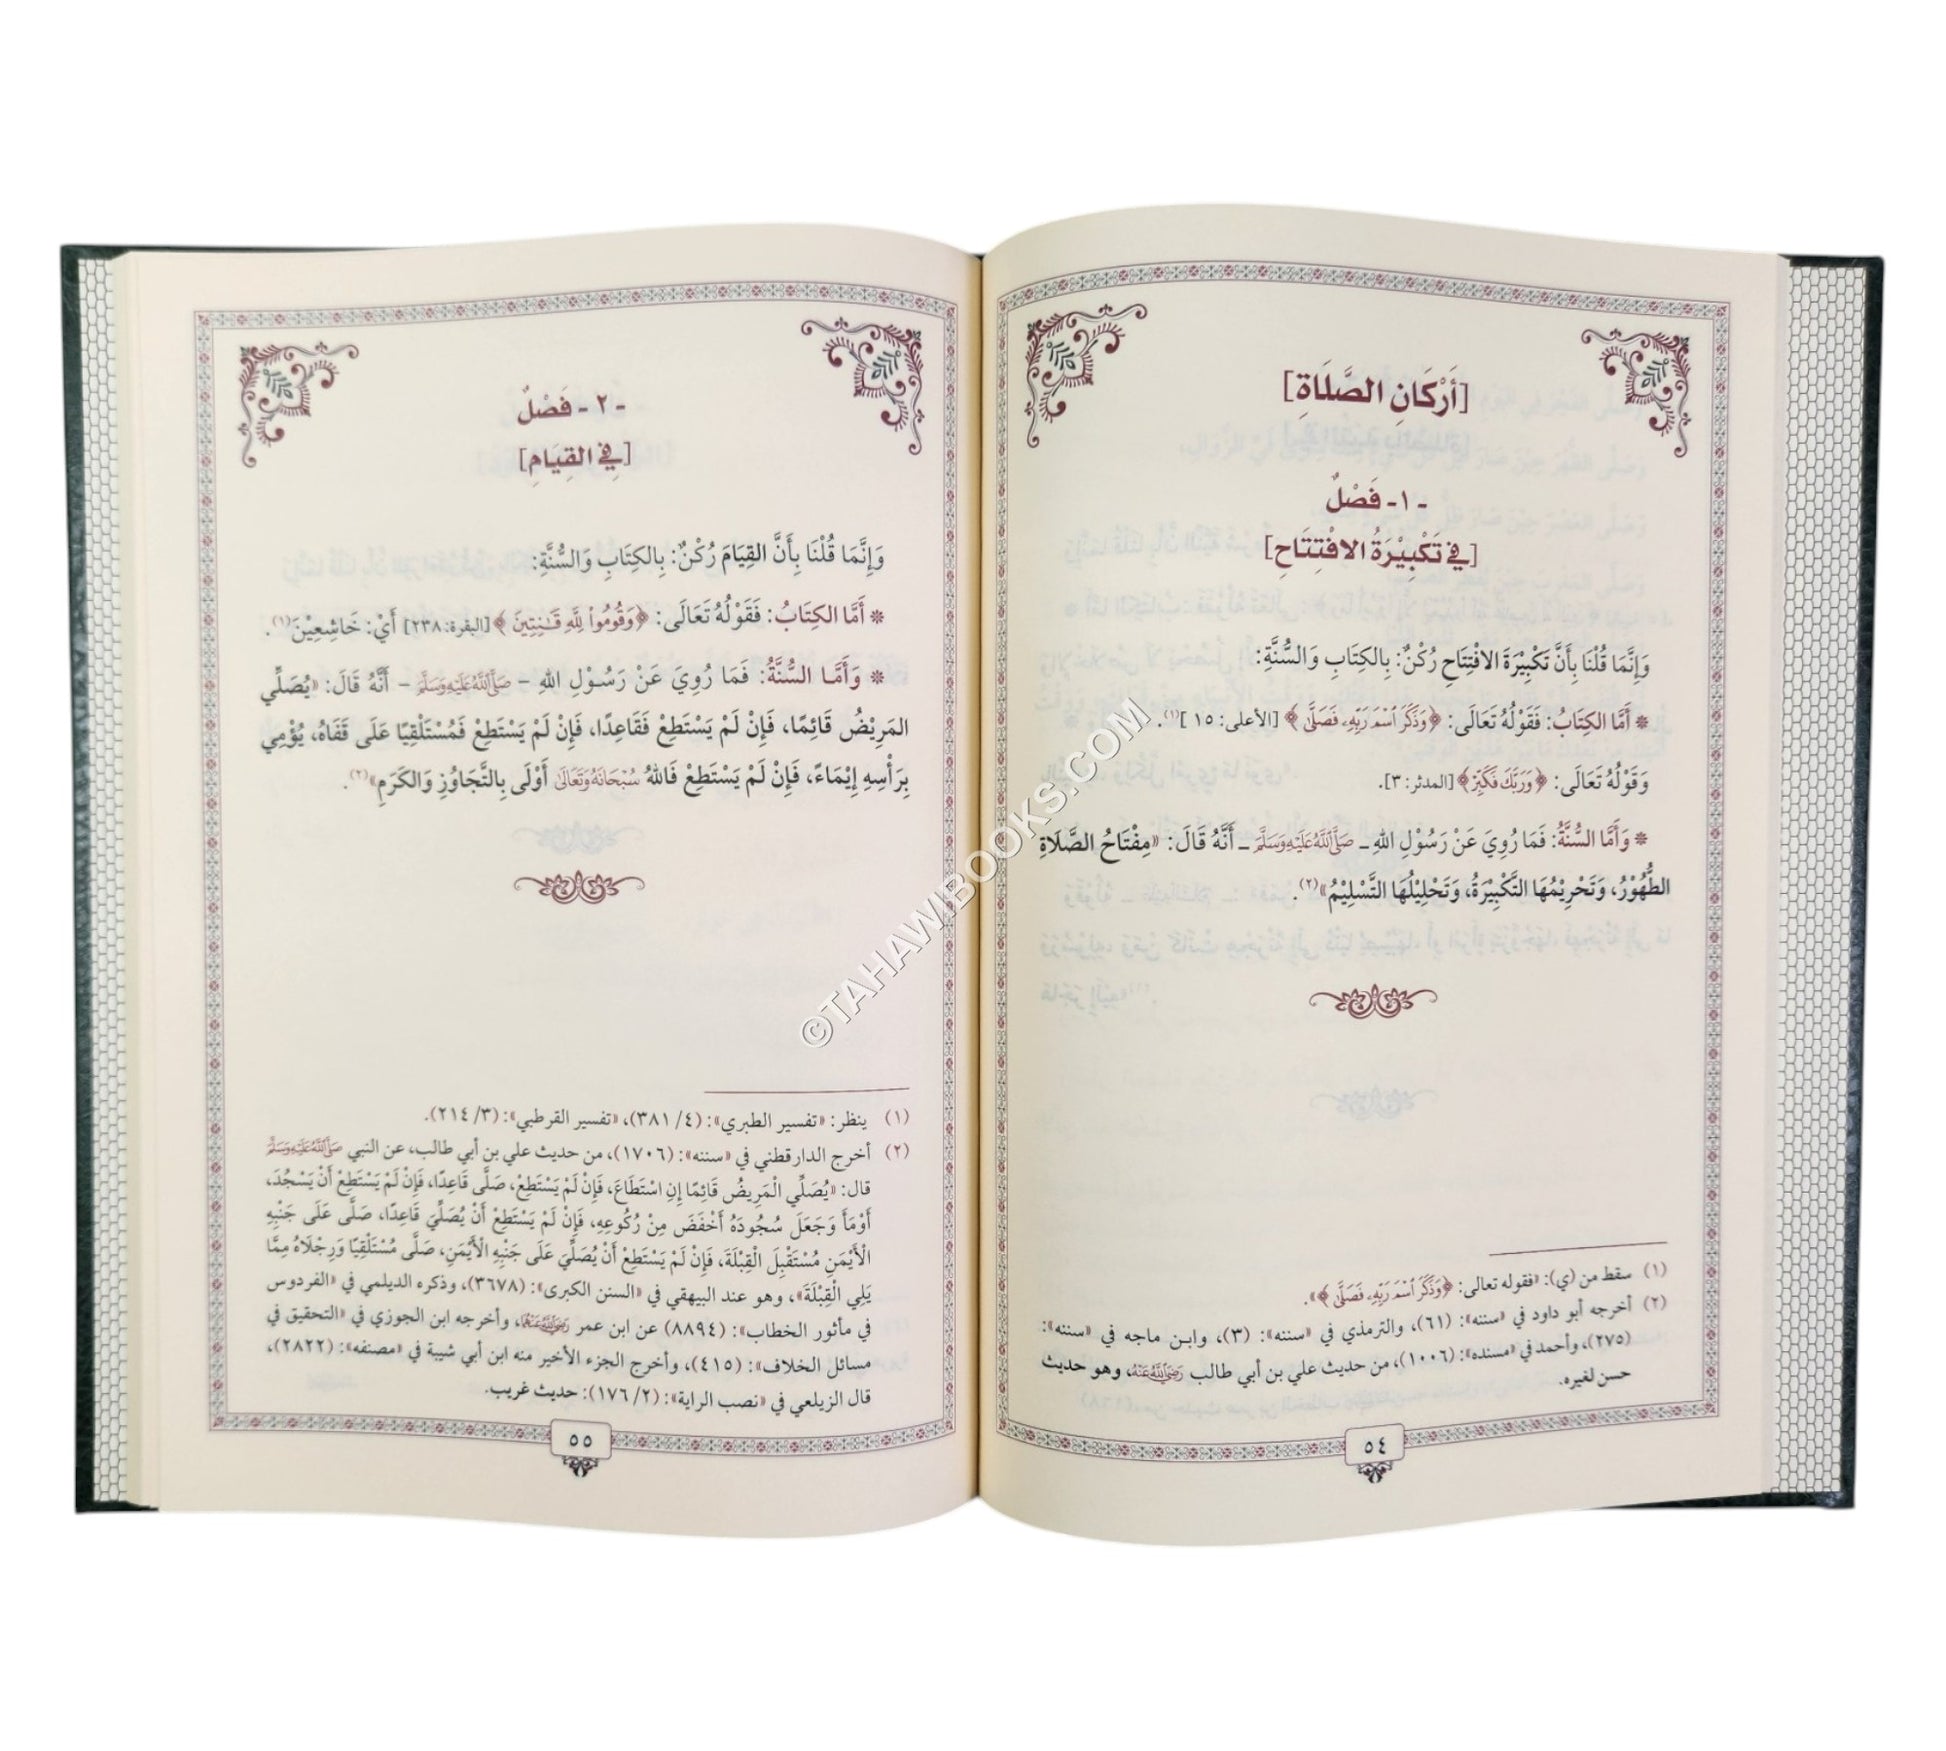 [أَرْكَانِ الصَّلَاةِ]
- ١- فَصْلٌ
[فِي تَكْبِيْرَةُ الِافْتِتَاحِ]
وَإِنَّمَا قُلْنَا بِأَنَّ تَكْبِيْرَةَ الِافْتِتَاحِ رُكْنٌ: بِالكِتَابِ وَالسُّنَّةِ:
* أَمَّا الكِتَابُ: فَقَوْلُهُ تَعَالَى: ﴿وَذَكَرَ ٱسْمَ رَبِّهِۦ فَصَلَّىٰ﴾ [الأعلى: ١٥](١).
وَقَوْلُهُ تَعَالَى: ﴿وَرَبَّكَ فَكَبِّرْ﴾ [المدثر: ٣].
* وَأَمَّا السُّنَّةُ: فَمَا رُوِيَ عَنْ رَسُوْلِ اللهِ ـ صَلَّى ٱللَّهُ عَلَيْهِ وَسَلَّمَ ـ أَنَّهُ قَالَ: «مِفْتَاحُ الصَّلَاةِ
الطُّهُوْرُ، وَتَحْرِيْمُهَا التَّكْبِيْرَةُ، وَتَحْلِيْلُهَا التَّسْلِيْمُ»(٢).
(١) سقط من (ي): «فقوله تعالى: ﴿وَذَكَرَ ٱسْمَ رَبِّهِۦ فَصَلَّىٰ﴾».
(٢) أخرجه أبو داود في «سننه»: (٦١)، والترمذي في «سننه»: (٣)، وابن ماجه في «سننه»:
(٢٧٥)، وأحمد في «مسنده»: (١٠٠٦)، من حديث علي بن أبي طالب رَضِيَ ٱللَّهُ عَنْهُ، وهو حديث
حسن لغيره.
٥٤
- ٢ - فَصْلٌ
[فِي القِيَامِ]
وَإِنَّمَا قُلْنَا بِأَنَّ القِيَامَ رُكْنٌ: بِالكِتَابِ وَالسُّنَّةِ:
* أَمَّا الكِتَابُ: فَقَوْلُهُ تَعَالَى: ﴿وَقُومُوا۟ لِلَّهِ قَـٰنِتِينَ﴾ [البقرة: ٢٣٨] أَيْ: خَاشِعِيْنَ(١).
* وَأَمَّا السُّنَّةُ: فَمَا رُوِيَ عَنْ رَسُوْلِ اللهِ - صَلَّى ٱللَّهُ عَلَيْهِ وَسَلَّمَ - أَنَّهُ قَالَ: «يُصَلِّي
المَرِيْضُ قَائِمًا، فَإِنْ لَمْ يَسْتَطِعْ فَقَاعِدًا، فَإِنْ لَمْ يَسْتَطِعْ فَمُسْتَلْقِيًا عَلَى قَفَاهُ، يُؤْمِي
بِرَأْسِهِ إِيْمَاءً، فَإِنْ لَمْ يَسْتَطِعْ فَاللهُ سُبْحَانَهُ وَتَعَالَى أَوْلَى بِالتَّجَاوُزِ وَالكَرَمِ»(٢).
(١) ينظر: «تفسير الطبري»: (٤/ ٣٨١)، «تفسير القرطبي»: (٣/ ٢١٤).
(٢) أخرج الدارقطني في «سننه»: (١٧٠٦)، من حديث علي بن أبي طالب، عن النبي صَلَّى ٱللَّهُ عَلَيْهِ وَسَلَّمَ
قال: «يُصَلِّي الْمَرِيضُ قَائِمًا إِنِ اسْتَطَاعَ، فَإِنْ لَمْ يَسْتَطِعْ، صَلَّى قَاعِدًا، فَإِنْ لَمْ يَسْتَطِعْ أَنْ يَسْجُدَ،
أَوْمَأَ وَجَعَلَ سُجُودَهُ أَخْفَضَ مِنْ رُكُوعِهِ، فَإِنْ لَمْ يَسْتَطِعْ أَنْ يُصَلِّيَ قَاعِدًا، صَلَّى عَلَى جَنْبِهِ
الْأَيْمَنِ مُسْتَقْبِلَ الْقِبْلَةَ، فَإِنْ لَمْ يَسْتَطِعْ أَنْ يُصَلِّيَ عَلَى جَنْبِهِ الْأَيْمَنِ، صَلَّى مُسْتَلْقِيًا وَرِجْلَاهُ مِمَّا
يَلِي الْقِبْلَةَ»، وهو عند البيهقي في «السنن الكبرى»: (٣٦٧٨)، وذكره الديلمي في «الفردوس
في مأثور الخطاب»: (٨٨٩٤) عن ابن عمر رَضِيَ ٱللَّهُ عَنْهُمَا، وأخرجه ابن الجوزي في «التحقيق في
مسائل الخلاف»: (٤١٥)، وأخرج الجزء الأخير منه ابن أبي شيبة في «مصنفه»: (٢٨٢٢)،
قال الزيلعي في «نصب الراية»: (٢/ ١٧٦): حديث غريب.
٥٥
©TAHAWIBOOKS.COM